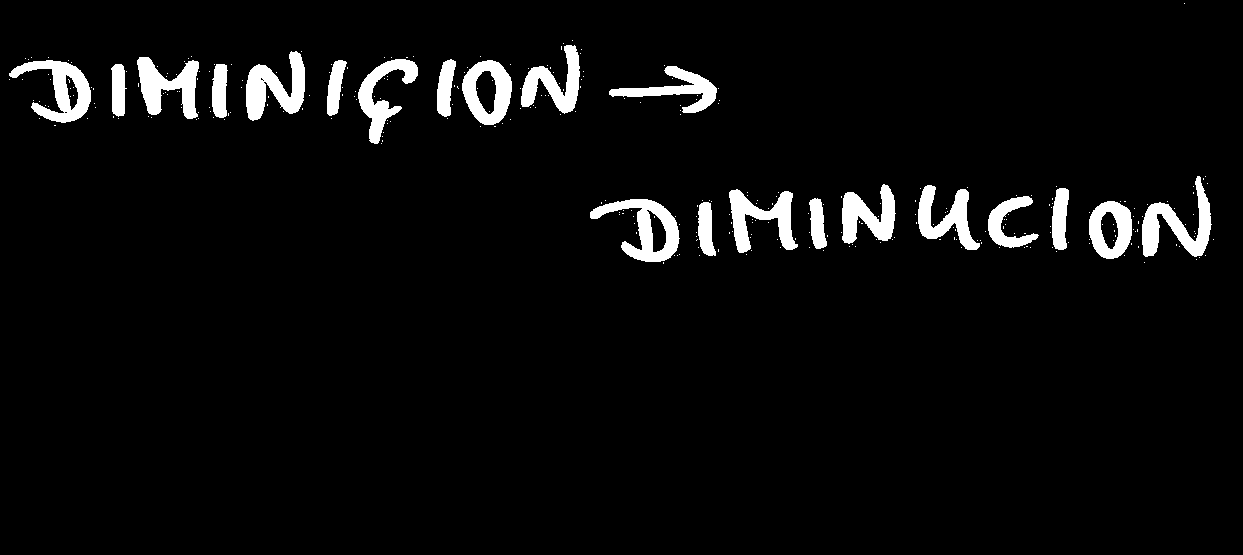 DIMINIÇION →
DIMINUCION